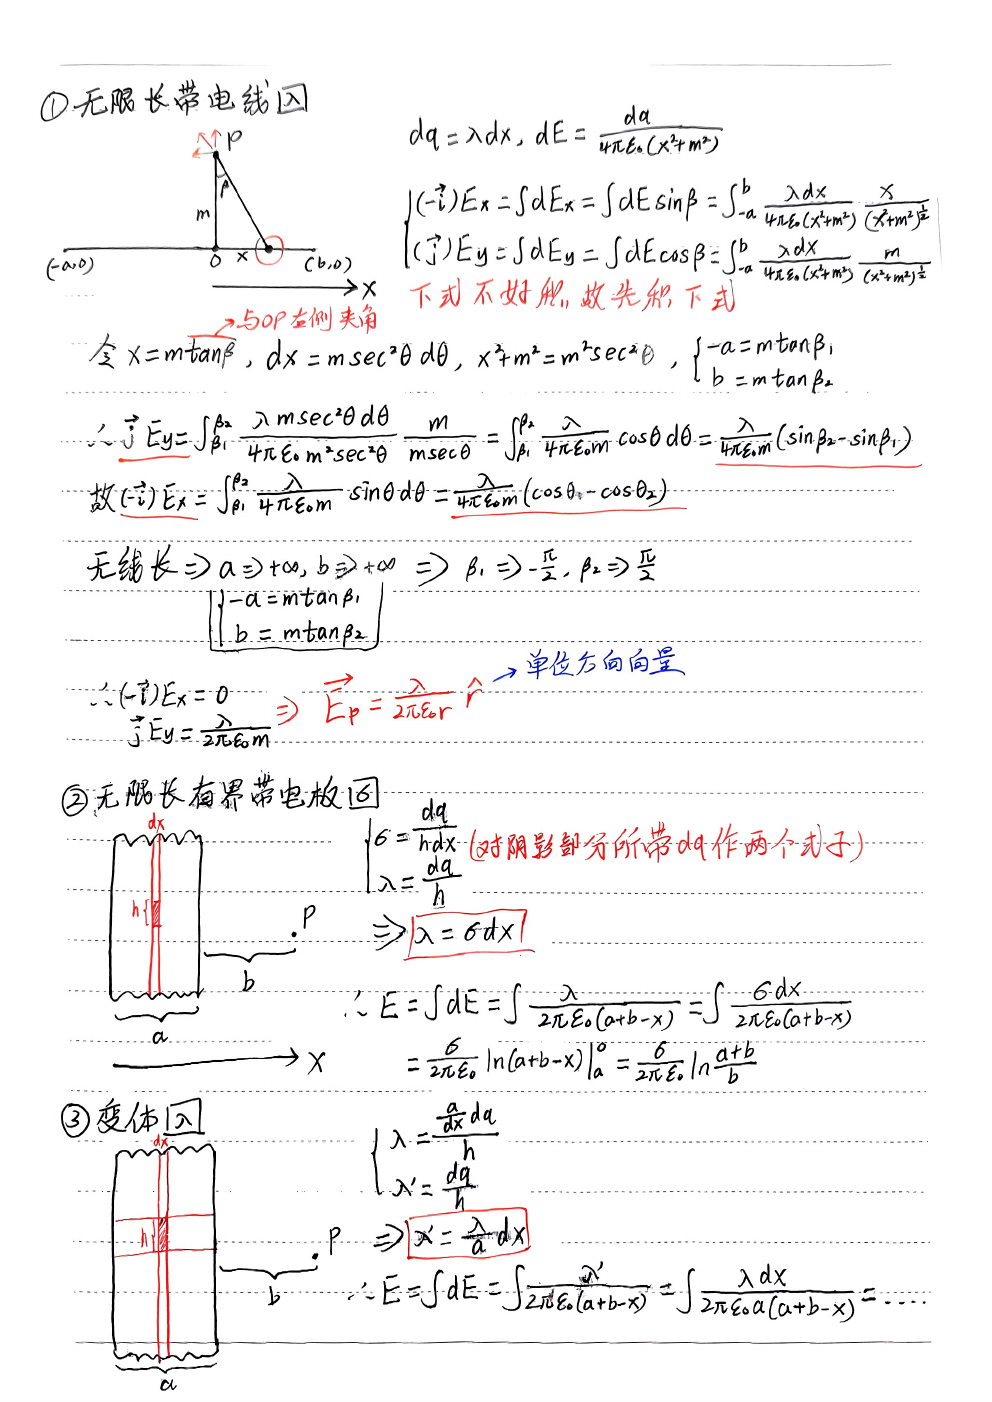 ①无限长带电线 λ
P
β
m
(-a,0) O x (b,0)
X
dq=λdx, dE=dq/(4πε₀(x²+m²))
(-i⃗)Ex=∫dEx=∫dEsinβ=∫_{-a}^{b} λdx/(4πε₀(x²+m²)) x/(x²+m²)^{1/2}
(j⃗)Ey=∫dEy=∫dEcosβ=∫_{-a}^{b} λdx/(4πε₀(x²+m²)) m/(x²+m²)^{1/2}
下式不好积,故先积下式
→与OP右侧夹角
令x=mtanβ, dx=msec²θdθ, x²+m²=m²sec²θ, {-a=mtanβ₁
b=mtanβ₂
∴j⃗Ey=∫_{β₁}^{β₂} λmsec²θdθ/(4πε₀m²sec²θ) m/(msecθ)=∫_{β₁}^{β₂} λ/(4πε₀m) cosθdθ=λ/(4πε₀m)(sinβ₂-sinβ₁)
故(-i⃗)Ex=∫_{β₁}^{β₂} λ/(4πε₀m) sinθdθ=λ/(4πε₀m)(cosθ₁-cosθ₂)
无线长⇒a⇒+∞,b⇒+∞⇒β₁⇒-π/2,β₂⇒π/2
{-a=mtanβ₁
b=mtanβ₂
→单位方向向量
∴(-i⃗)Ex=0
j⃗Ey=λ/(2πε₀m)
⇒E⃗p=λ/(2πε₀r) r̂
②无限长有界带电板 σ
dx
h
P
b
a
X
{σ=dq/(hdx)
(对阴影部分所带dq作两个式子)
λ=dq/h
⇒λ=σdx
∴E=∫dE=∫λ/(2πε₀(a+b-x))=∫σdx/(2πε₀(a+b-x))
=σ/(2πε₀) ln(a+b-x)|_a^0=σ/(2πε₀) ln (a+b)/b
③变体 λ
dx
h
P
b
a
{λ=(a/dx)dq/h
λ'=dq/h
⇒λ'=λ/a dx
∴E=∫dE=∫λ'/(2πε₀(a+b-x))=∫λdx/(2πε₀a(a+b-x))=....